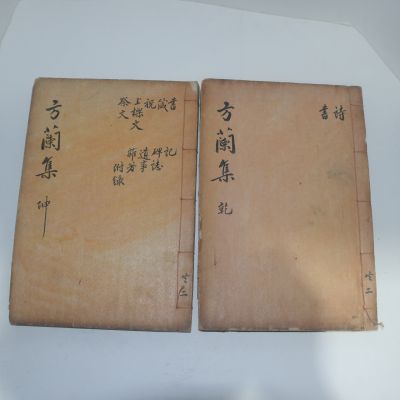 方蘭集 乾
詩
書
方蘭集 坤
書
箴
祝
上樑文
祭文
記
碑誌
遺事
附錄